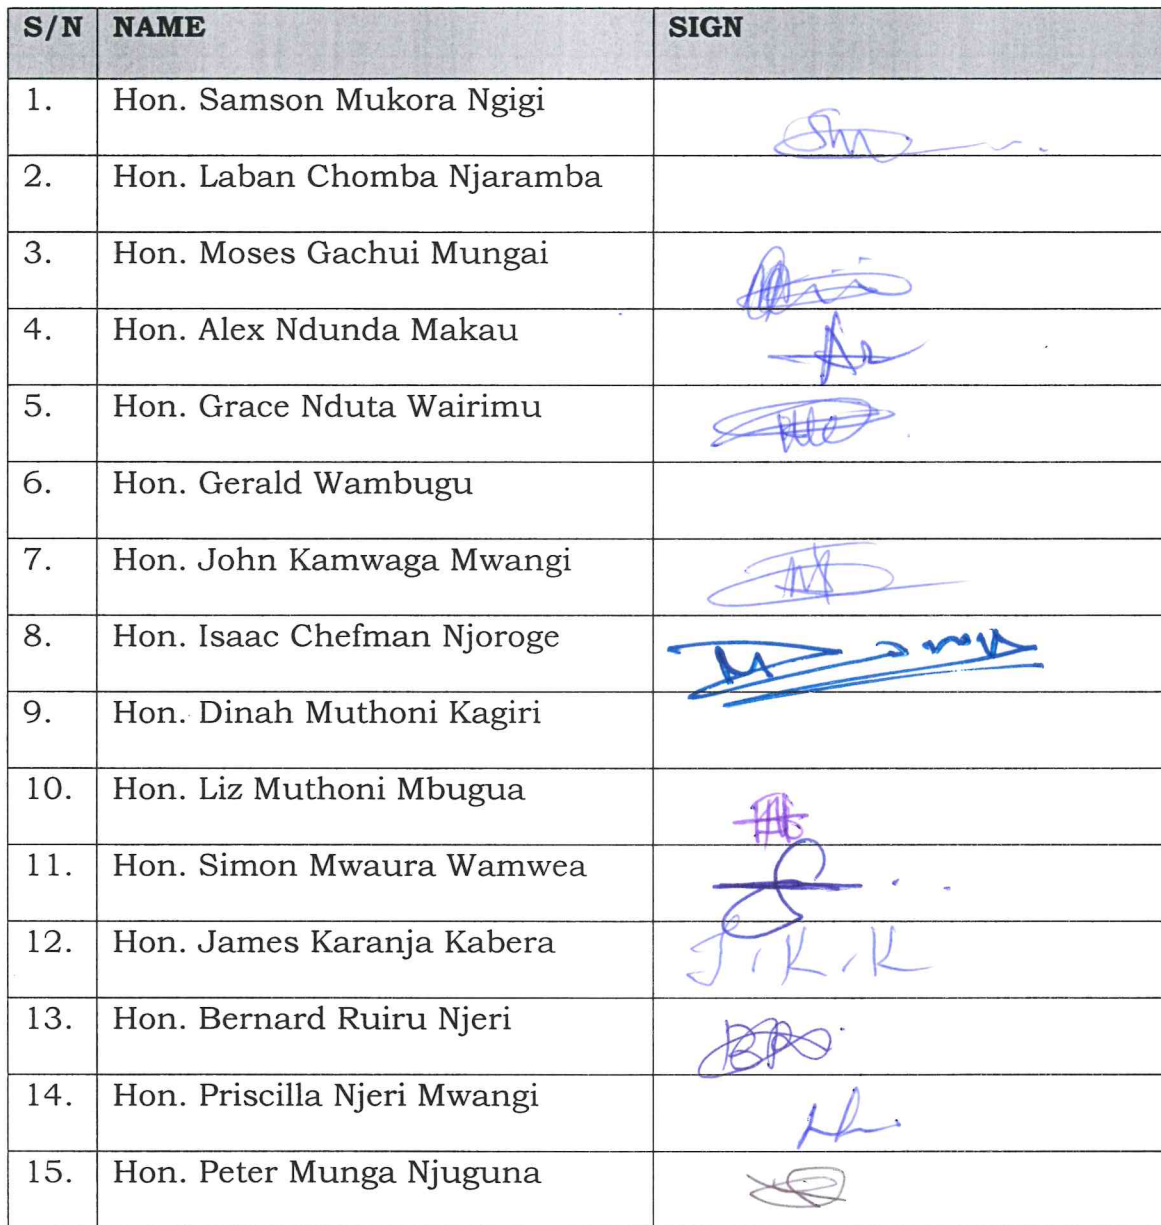 S/N NAME SIGN
1. Hon. Samson Mukora Ngigi
2. Hon. Laban Chomba Njaramba
3. Hon. Moses Gachui Mungai
4. Hon. Alex Ndunda Makau
5. Hon. Grace Nduta Wairimu
6. Hon. Gerald Wambugu
7. Hon. John Kamwaga Mwangi
8. Hon. Isaac Chefman Njoroge
9. Hon. Dinah Muthoni Kagiri
10. Hon. Liz Muthoni Mbugua
11. Hon. Simon Mwaura Wamwea
12. Hon. James Karanja Kabera J.K.K
13. Hon. Bernard Ruiru Njeri
14. Hon. Priscilla Njeri Mwangi
15. Hon. Peter Munga Njuguna